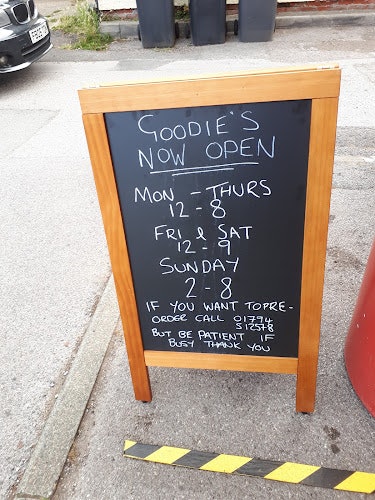 GOODIE'S
NOW OPEN
MON - THURS
12 - 8
FRI & SAT
12 - 9
SUNDAY
2 - 8
IF YOU WANT TO PRE-
ORDER CALL 01794
512578
BUT BE PATIENT IF
BUSY THANK YOU